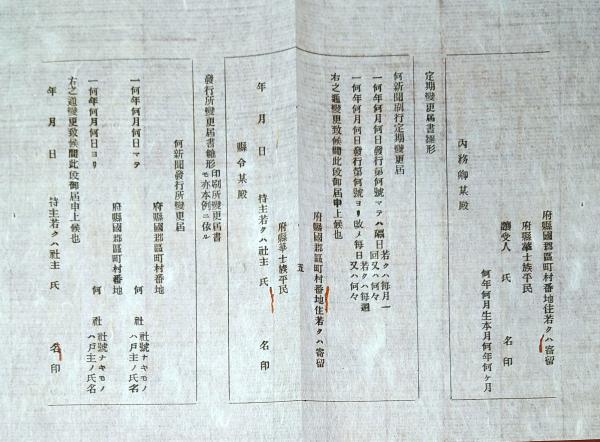 府縣國郡區町村番地住若クハ寄留
府縣華士族平民
讓受人 氏 名印
何年何月生本月何年何ヶ月
內務卿某殿
定期變更屆書雛形
何新聞刷行定期變更屆
一何年何月何日發行第何號マテハ隔日若クハ每月一回又ハ何々
一何年何月何日發行第何號ヨリ改メ每日若クハ每週又ハ何々
右之通變更致候間此段御屆申上候也
府縣國郡區町村番地住若クハ寄留
五
府縣華士族平民
年 月 日 持主若クハ社主 氏 名印
縣令某殿
發行所變更屆書雛形印刷所變更屆書モ亦本例ニ依ル
何新聞發行所變更屆
府縣國郡區町村番地
一何年何月何日マテ 何 社 社號ナキモノハ戶主ノ氏名
府縣國郡區町村番地
一何年何月何日ヨリ 何 社 社號ナキモノハ戶主ノ氏名
右之通變更致候間此段御屆申上候也
年 月 日 持主若クハ社主 氏 名印